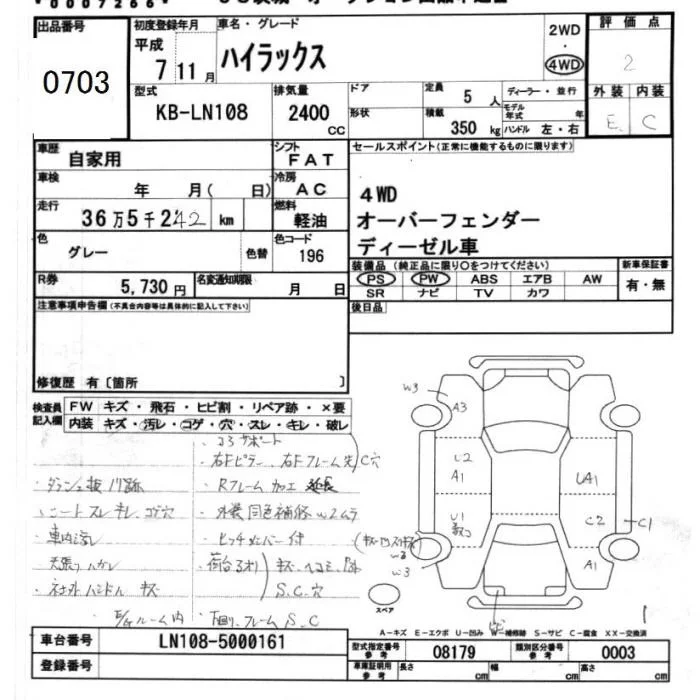 出品番号 初度登録年月 車名・グレード 2WD 評価点
0703 平成 7 11月 ハイラックス ・ 4WD 2
型式 排気量 ドア 定員 5 人 ディーラー・並行 外装 内装
KB-LN108 2400 cc 形状 積載 350 kg モデル年式 年 ハンドル 左・右 E C
車歴 自家用 シフト FAT セールスポイント(正常に機能するものに限ります)
車検 年 月( 日) 冷房 AC 4WD
走行 36万5千242 km 燃料 軽油 オーバーフェンダー
色 グレー 色替 色コード 196 ディーゼル車
R券 5,730円 名変通知期限 月 日 装備品(純正品に限り○をつけてください) 新車保証書
PS PW ABS エアB AW 有・無
SR ナビ TV カワ
注意事項申告欄(不具合内容等は具体的に記入して下さい) 後日品
修復歴 有〔箇所 〕
検査員記入欄 FW キズ・飛石・ヒビ割・リペア跡・×要
内装 キズ・汚レ・コゲ・穴・スレ・キレ・破レ
・コアサポート
・右Fピラー、右Fフレーム先 C穴
・Rフレーム加工 延長
・シートスレ キレ、コゲ穴 ・外装同色補修 W2ムラ
・車内汚レ ・ヒッチメンバー付
・天張ハガレ ・荷台3オリ キズ ヘコミ
・ハンドル キズ S.C.穴
E/gルーム内 ・下廻、フレーム S.C
W3 A3
U2 A1 UA1
U1 C2 C1
W3 A1
スペア
A-キズ E-エクボ U-凹み W-補修跡 S-サビ C-腐食 XX-交換済
車台番号 LN108-5000161 型式指定番号 参考 08179 類別区分番号 参考 0003
登録番号 車庫証明用 参考 長さ cm 幅 cm 高さ cm